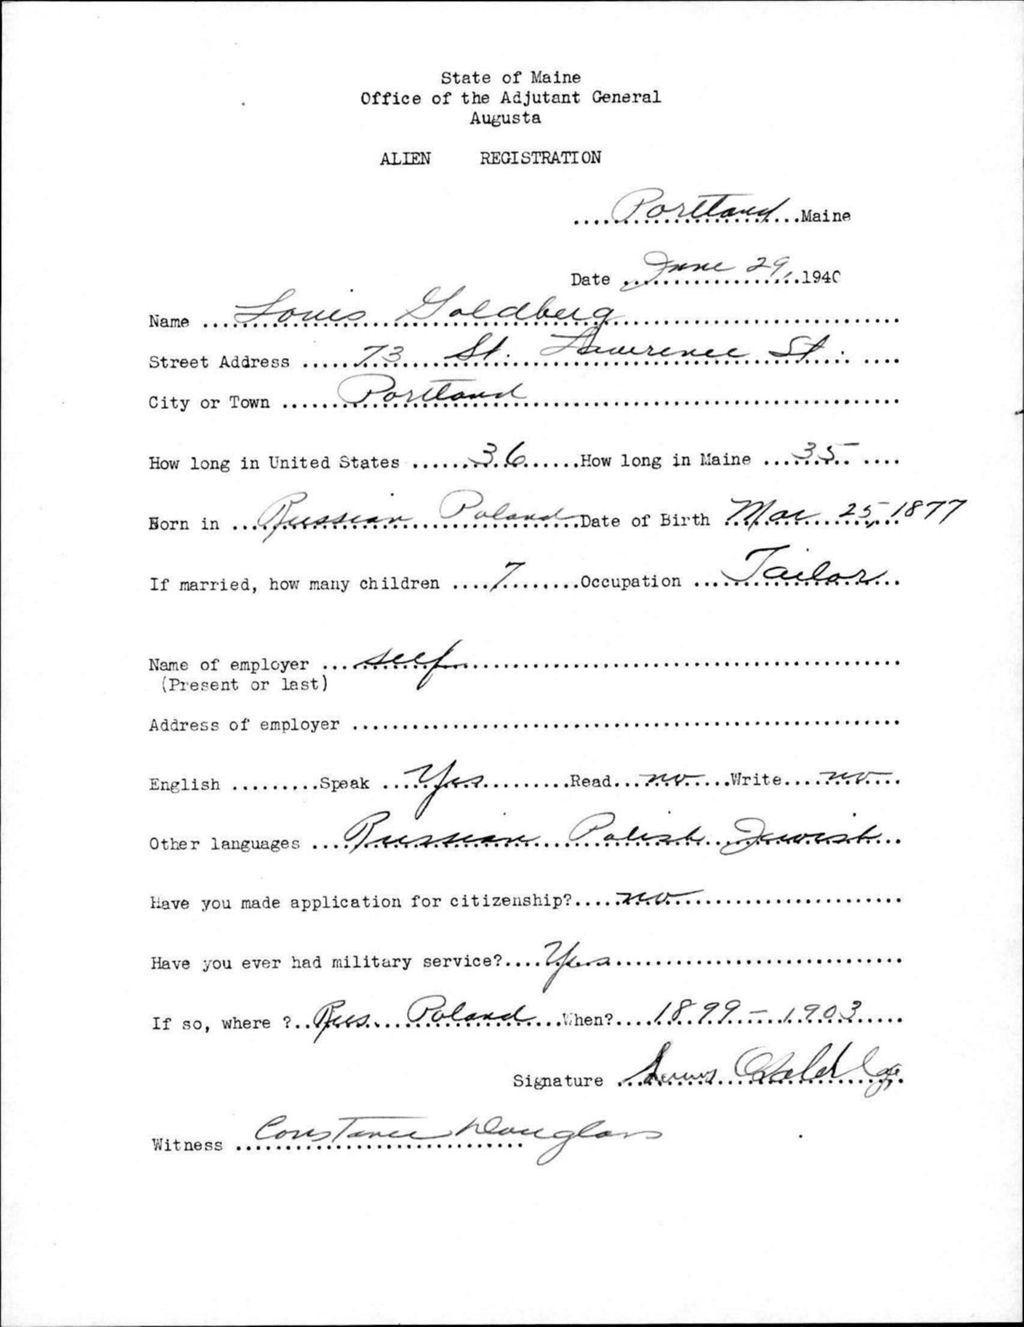 State of Maine
Office of the Adjutant General
Augusta
ALIEN REGISTRATION
Portland Maine
Date June 29, 1940
Name Louis Goldberg
Street Address 73 St. Lawrence St.
City or Town Portland
How long in United States 36 How long in Maine 35
Born in Russian Poland Date of Birth Mar 25, 1877
If married, how many children 7 Occupation Tailor
Name of employer self
(Present or last)
Address of employer
English Speak Yes Read no Write no
Other languages Russian Polish Jewish
Have you made application for citizenship? no
Have you ever had military service? Yes
If so, where ? Rus. Poland When? 1899-1903
Signature Louis Goldberg
Witness Constance Douglass